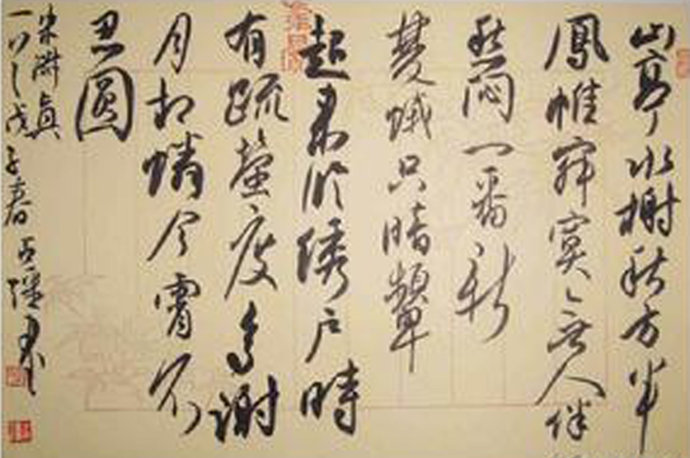 山亭水榭秋方半
鳳帷寂寞無人伴
愁悶一番新
雙蛾只暗顰
起來臨繡戶時
有疏螢度多謝
月相憐今宵不
忍圓
朱淑真
戊子春